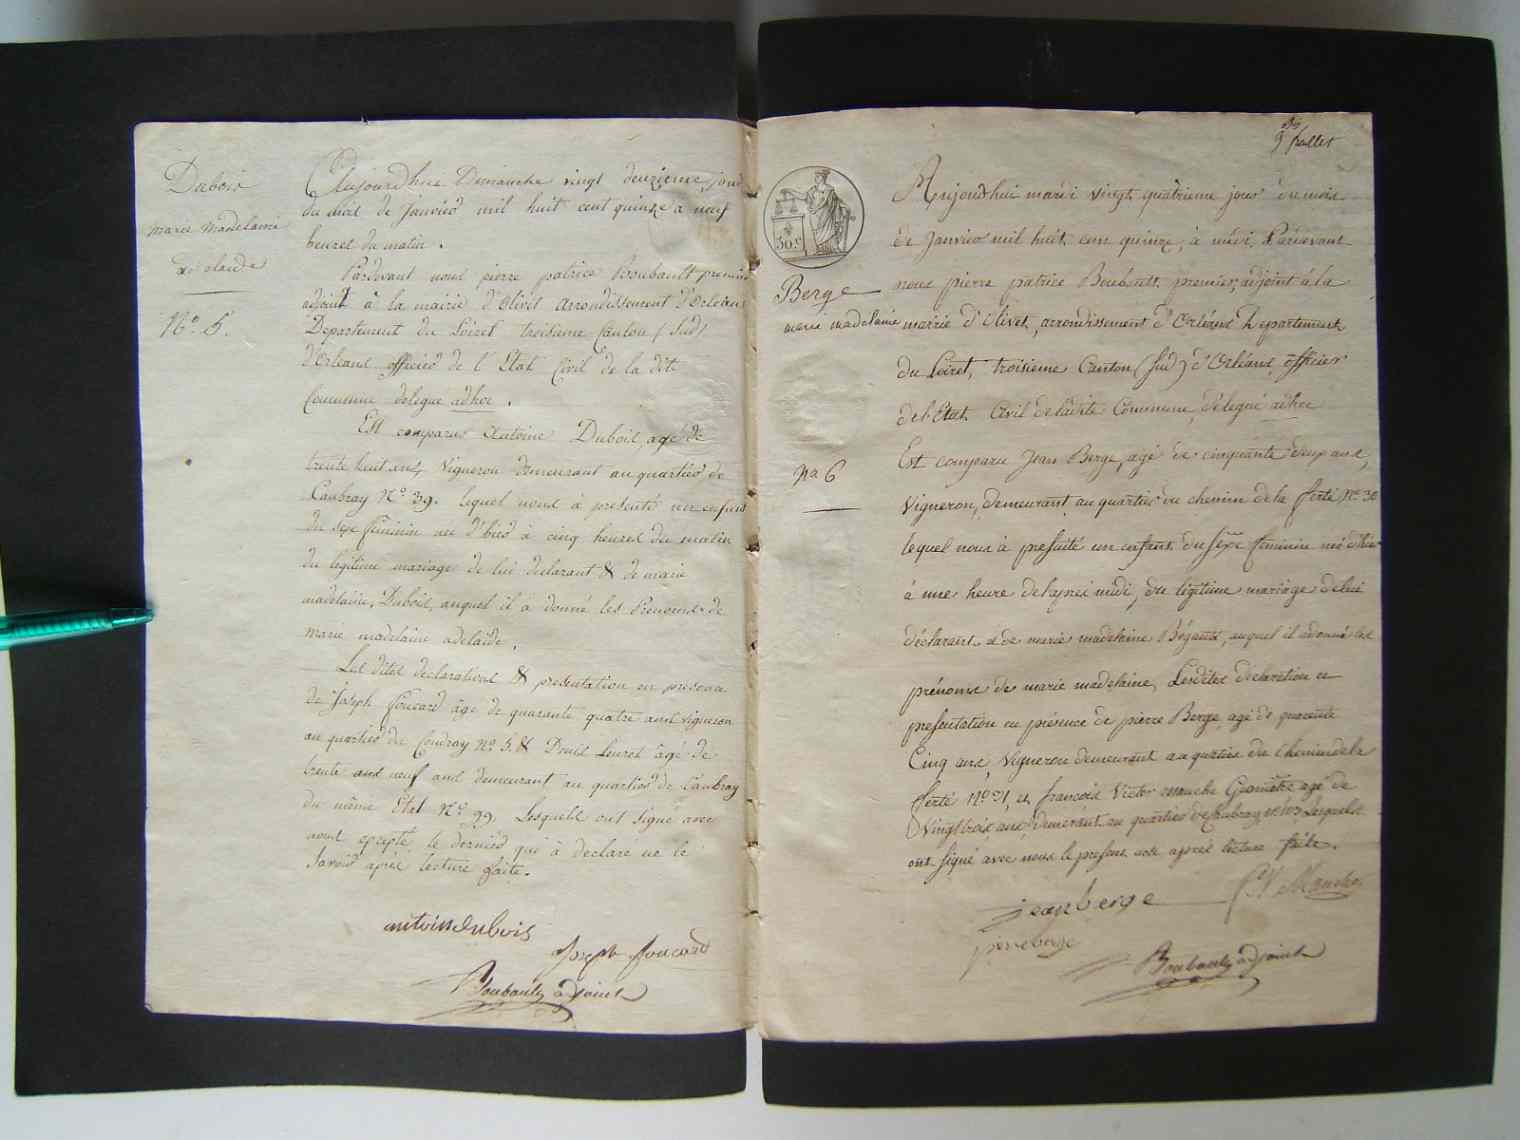 Dubois
marie Madelaine
adelaide
N.° 5.
Aujourd'hui Dimanche vingt deuzieme jour
du mois de Janvier mil huit cent quinze a neuf
heures du matin.
Pardevant nous pierre patrice Boubault premier
adjoint à la mairie d'Olivet arrondissement d'Orleans
Departement du Loiret troisieme Canton (Sud)
d'Orleans officier de l'Etat Civil de la dite
Commune delegué adhoc.
Est comparu Antoine Dubois, agé de
trente huit ans, Vigneron demeurant au quartier de
Caubray N.° 39. lequel nous à presenté un enfant
du sexe feminin née d'hier à cinq heures du matin
du legitime mariage de lui declarant & de marie
madelaine, Dubois, auquel il a donné les Prenoms de
marie madelaine adelaïde.
Les dites declarations & presentation en presence
de Joseph foucard âgé de quarante quatre ans vigneron
au quartier du Coudray N.° 5. & Louret âgé de
trente ans neuf ans demeurant au quartier de Caubray
du même Etat N.° 99 Lesquels ont Signé avec
nous excepté le dernier qui à declaré ne le
Savoir après lecture faite.
antoin dubois
Joseph foucard
Boubault adjoint
9 feuillet
30.c
Berge
marie madelaine
no. 6
Aujourd'hui mardi vingt quatrieme jour du mois
de Janvier mil huit cent quinze, à midi, Pardevant
nous pierre patrice Boubault, premier adjoint à la
mairie d'Olivet, arrondissement d'Orléans Departement
du Loiret, troisieme Canton (Sud) d'Orléans, officier
de l'Etat Civil de ladite Commune, delegué adhoc
Est comparu Jean Berge, agé de cinquante deux ans,
Vigneron, demeurant au quartier du chemin de la ferté N.° 30
lequel nous à presenté un enfant du sexe feminin né d'hier
à une heure de l'apres midi, du légitime mariage de lui
déclarant et de marie madelaine auquel il a donné les
prénoms de marie madelaine, Lesdites déclaration et
presentation en présence de pierre Berge, agé de quarante
Cinq ans, Vigneron demeurant au quartier du Chemin de la
ferté N.° 31, et françois Victor manche Geometre agé de
Vingt trois ans, demeurant au quartier de Caubray Lesquels
ont signé avec nous le present acte après lecture faite.
jean berge
F V Manche
pierre berge
Boubault adjoint